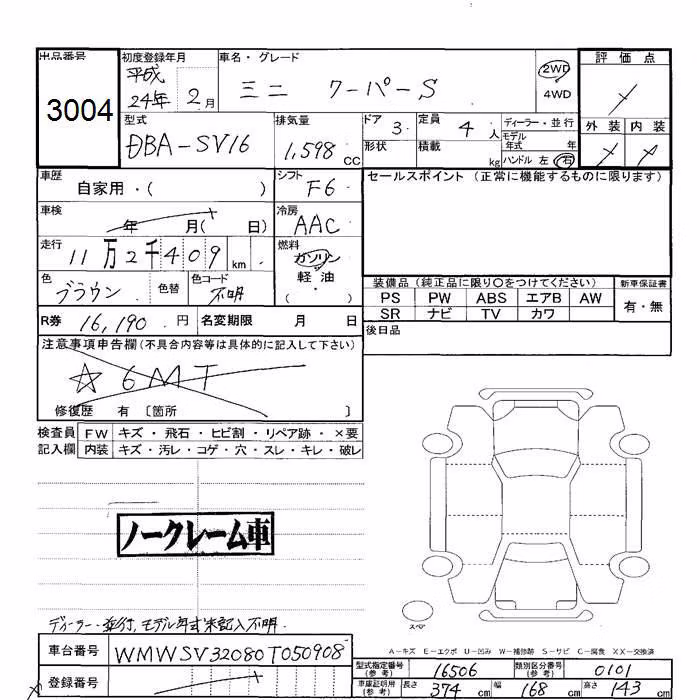 出品番号
3004
初度登録年月
平成
24年 2月
車名・グレード
ミニ クーパーS
2WD
4WD
評価点
外装 内装
型式
DBA-SV16
排気量
1,598 cc
ドア 3
定員 4 人
ディーラー・並行
モデル
年式 年
形状
積載 kg
ハンドル 左 右
車歴
自家用・( )
シフト
F6
セールスポイント (正常に機能するものに限ります)
車検
年 月( 日)
冷房
AAC
走行
11万2千409 km
燃料
ガソリン
軽油
( )
色
ブラウン
色替
色コード
不明
装備品 (純正品に限り〇をつけてください)
新車保証書
PS PW ABS エアB AW
SR ナビ TV カワ
有・無
R券 16,190 円
名変期限 月 日
後日品
注意事項申告欄(不具合内容等は具体的に記入して下さい)
☆6MT
修復歴 有 〔箇所 〕
検査員
記入欄
FW キズ・飛石・ヒビ割・リペア跡・×要
内装 キズ・汚レ・コゲ・穴・スレ・キレ・破レ
ノークレーム車
ディーラー・並行、モデル年式未記入不明
スペア
A-キズ E-エクボ U-凹み W-補修跡 S-サビ C-腐食 XX-交換済
車台番号
WMWSV32080T050908
登録番号
型式指定番号
(参考)
16506
類別区分番号
(参考)
0101
車庫証明用
(参考)
長さ 374 cm 幅 168 cm 高さ 143 cm